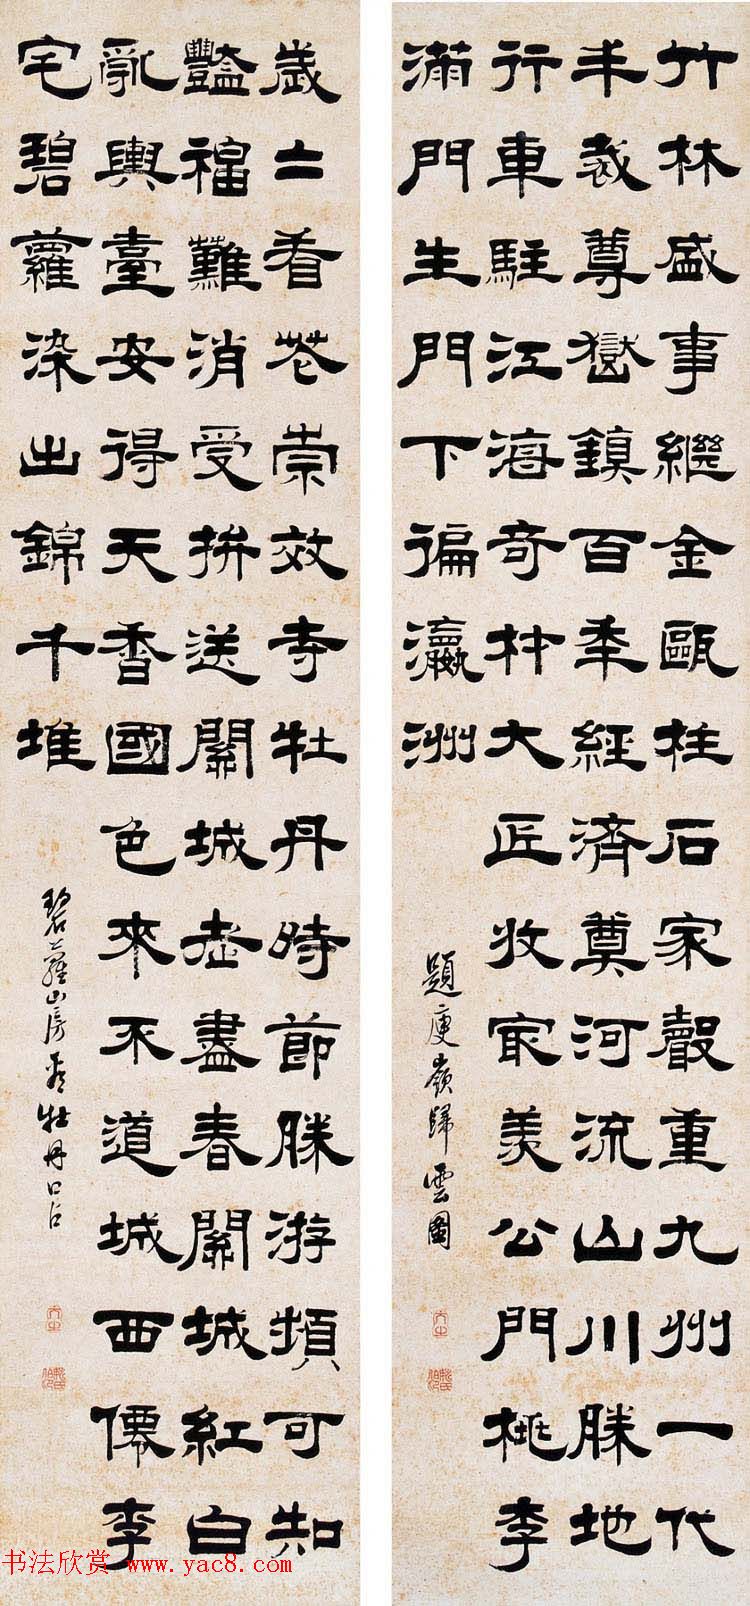 竹林盛事繼金甌柱石家聲重九州一代
丰裁尊嶽鎮百秊經濟奠河流山川勝地
行車駐江海奇材大匠收家羨公門桃李
滿門生門下徧瀛洲
題庾嶺歸雲圖
歲二看花崇效寺牡丹時節勝游頻可知
豔福難消受拚送關城老盡春關城紅白
亂輿臺安得天香國色來不道城西僊李
宅碧蘿染出錦千堆
碧蘿山房看牡丹口占
书法欣赏 www.yac8.com